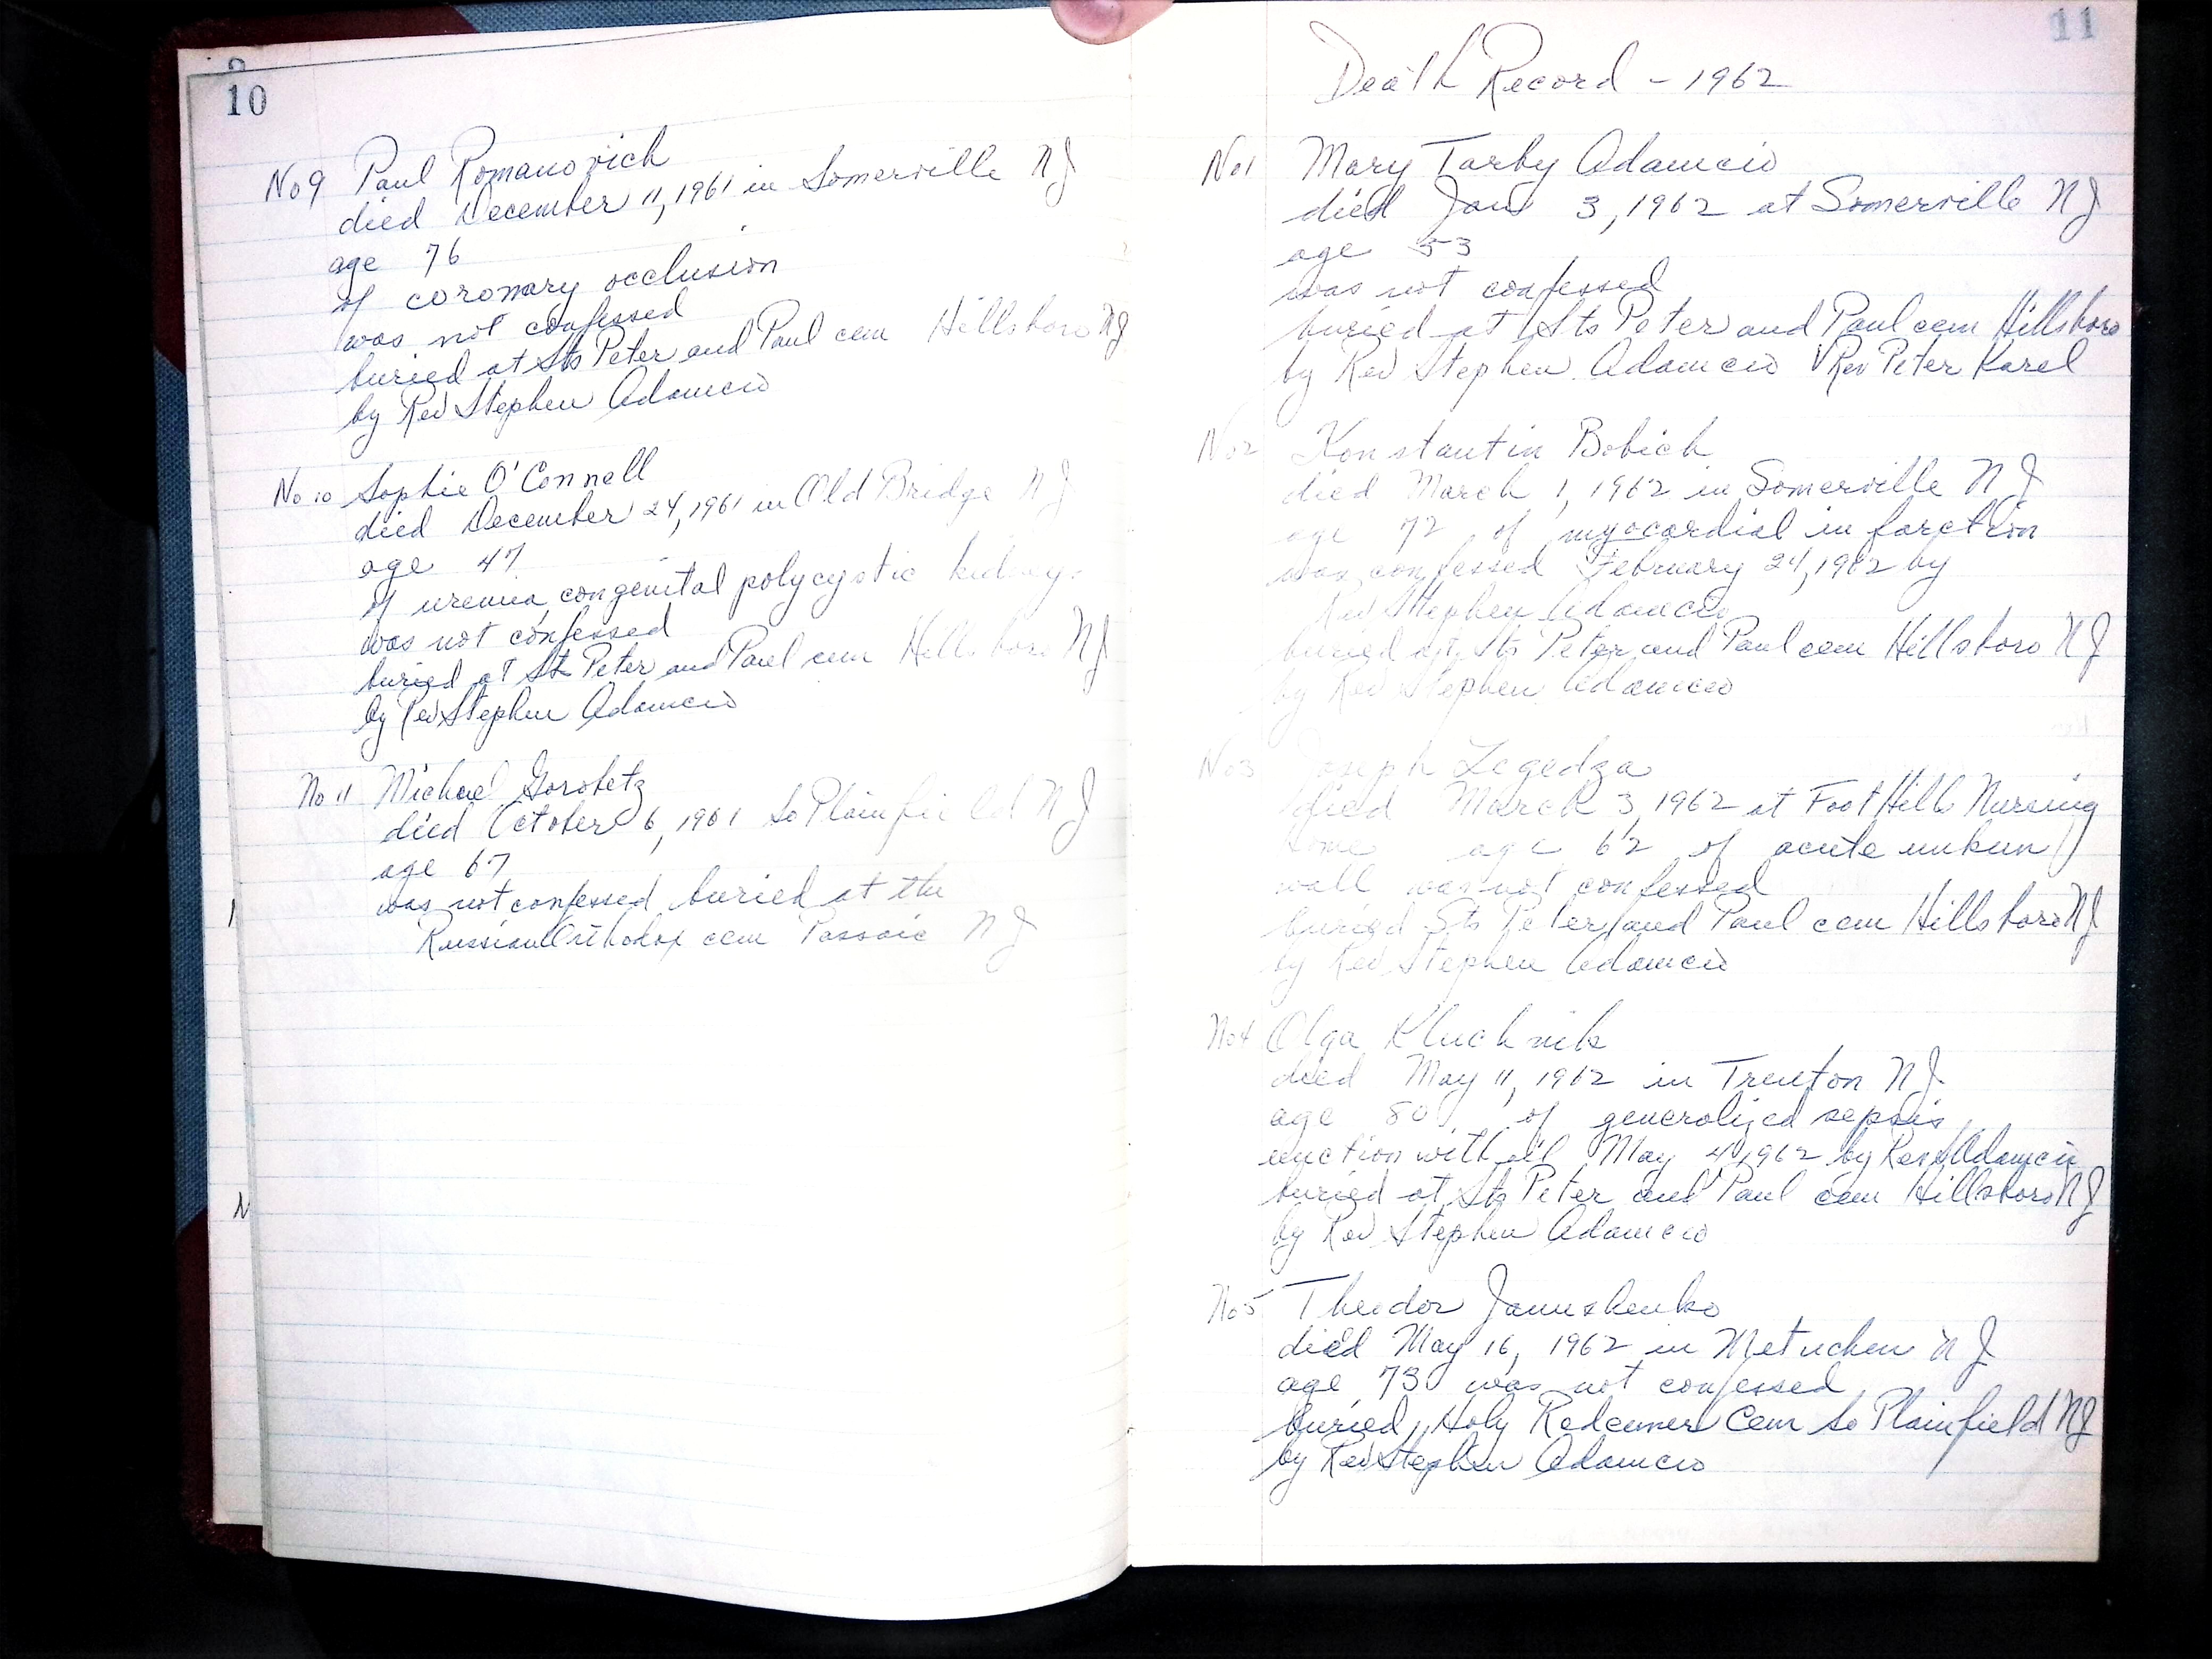 10
No 9 Paul Romanovich
died December 11, 1961 in Somerville NJ
age 76
of coronary occlusion
was not confessed
buried at Sts Peter and Paul cem Hillsboro NJ
by Rev Stephen Adamcio
No 10 Sophie O'Connell
died December 24, 1961 in Old Bridge NJ
age 47
of uremia, congenital polycystic kidneys
was not confessed
buried at Sts Peter and Paul cem Hillsboro NJ
by Rev Stephen Adamcio
No 11 Michael Gorobetz
died October 6, 1961 So Plainfield NJ
age 67
was not confessed buried at the
Russian Orthodox cem Passaic NJ
11
Death Record - 1962
No 1 Mary Tarby Adamcio
died Jan 3, 1962 at Somerville NJ
age 53
was not confessed
buried at Sts Peter and Paul cem Hillsboro
by Rev Stephen Adamcio Rev Peter Karel
No 2 Konstantin Bobich
died March 1, 1962 in Somerville NJ
age 72 of myocardial infarction
was confessed February 24, 1962 by
Rev Stephen Adamcio
buried at Sts Peter and Paul cem Hillsboro NJ
by Rev Stephen Adamcio
No 3 Joseph Legedza
died March 3, 1962 at Foot Hills Nursing
home age 62 of acute
was not confessed
buried Sts Peter and Paul cem Hillsboro NJ
by Rev Stephen Adamcio
No 4 Olga Kluchnik
died May 11, 1962 in Trenton NJ
age 80 of generalized sepsis
unction with oil May 4, 1962 by Rev S Adamcio
buried at Sts Peter and Paul cem Hillsboro NJ
by Rev Stephen Adamcio
No 5 Theodor Janushenko
died May 16, 1962 in Metuchen NJ
age 73 was not confessed
buried, Holy Redeemer Cem So Plainfield NJ
by Rev Stephen Adamcio